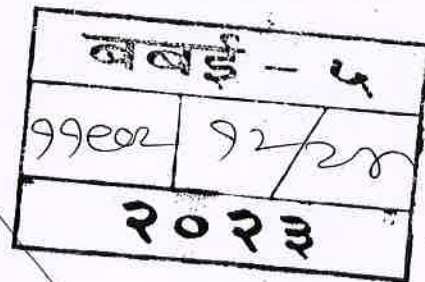 बबई - ५
११९०२ १२/२४
२०२३